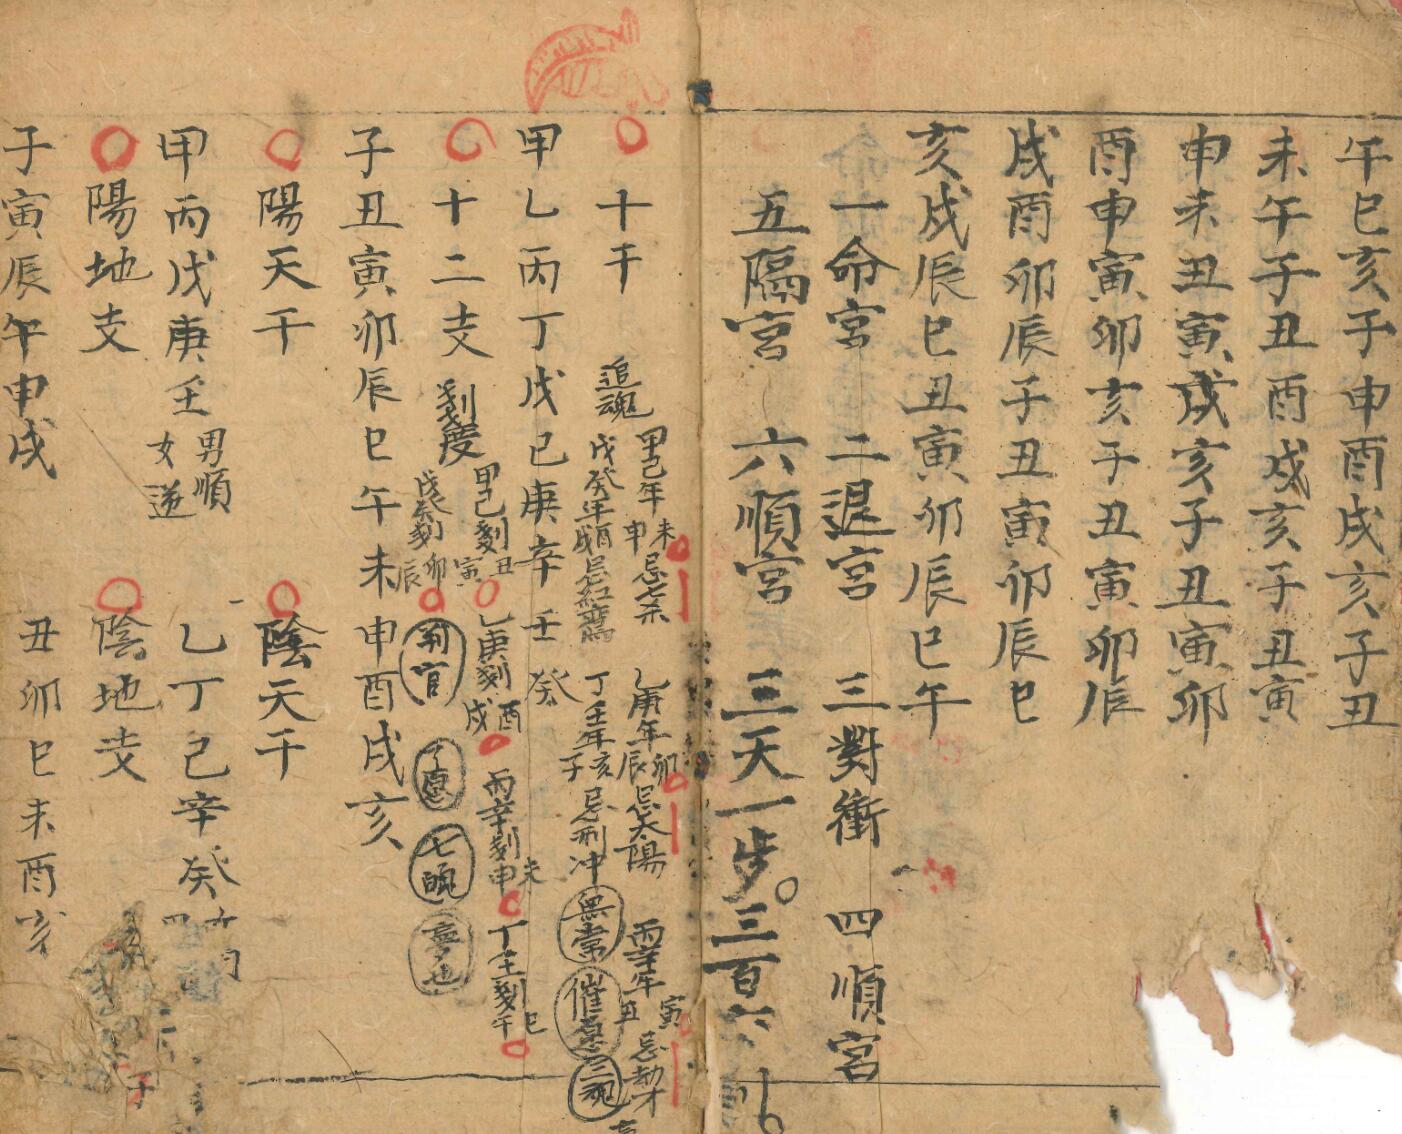 午巳亥子申酉戌亥子丑
未午子丑酉戌亥子丑寅
申未丑寅戌亥子丑寅卯
酉申寅卯亥子丑寅卯辰
戌酉卯辰子丑寅卯辰巳
亥戌辰巳丑寅卯辰巳午
一命宮 二退宮 三對衝 四順宮
五隔宮 六順宮 三天一步。三百六
十干
追魂
甲己年未申忌七杀
乙庚年卯辰忌太陽
丙辛年寅丑忌劫才
戊癸年酉戌忌紅鸞
丁壬年亥子忌刑冲
無常
催
三魂
甲乙丙丁戊己庚辛壬癸
十二支
刻度
甲己刻丑寅
乙庚刻酉戌
丙辛刻未申
丁壬刻巳午
戊癸刻卯辰
判官
七魄
夢也
子丑寅卯辰巳午未申酉戌亥
陽天干 陰天干
甲丙戊庚壬 男順 女逆 乙丁己辛癸
陽地支 陰地支
子寅辰午申戌 丑卯巳未酉亥